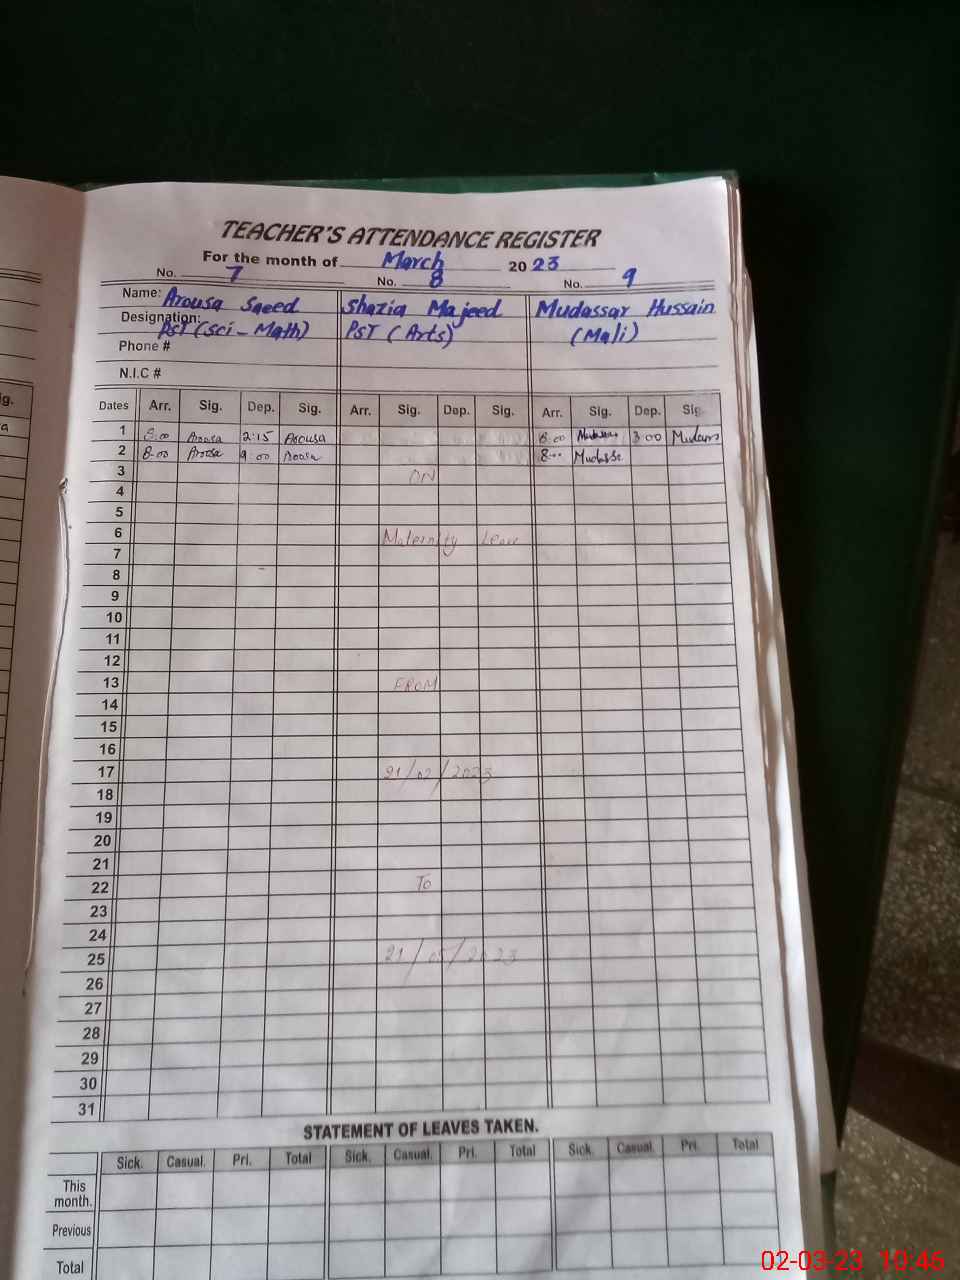 TEACHER'S ATTENDANCE REGISTER
For the month of March 2023
No. 7 No. 8 No. 9
Name: Arousa Saeed Shazia Majeed Mudassar Hussain
Designation: PST (Sci - Math) PST (Arts) (Mali)
Phone #
N.I.C #
Dates Arr. Sig. Dep. Sig. Arr. Sig. Dep. Sig. Arr. Sig. Dep. Sig
1 8:00 Arousa 2:15 Arousa 3:00
2 8:00 Arousa 9:00
3 ON
4
5
6 Maternity Leave
7
8
9
10
11
12
13 FROM
14
15
16
17 21/02/2023
18
19
20
21
22 To
23
24
25 21/05/2023
26
27
28
29
30
31
STATEMENT OF LEAVES TAKEN.
Sick. Casual. Pri. Total Sick. Casual. Pri. Total Sick. Casual. Pri. Total
This
month.
Previous
Total
ig.
a
02-03-23 10:46